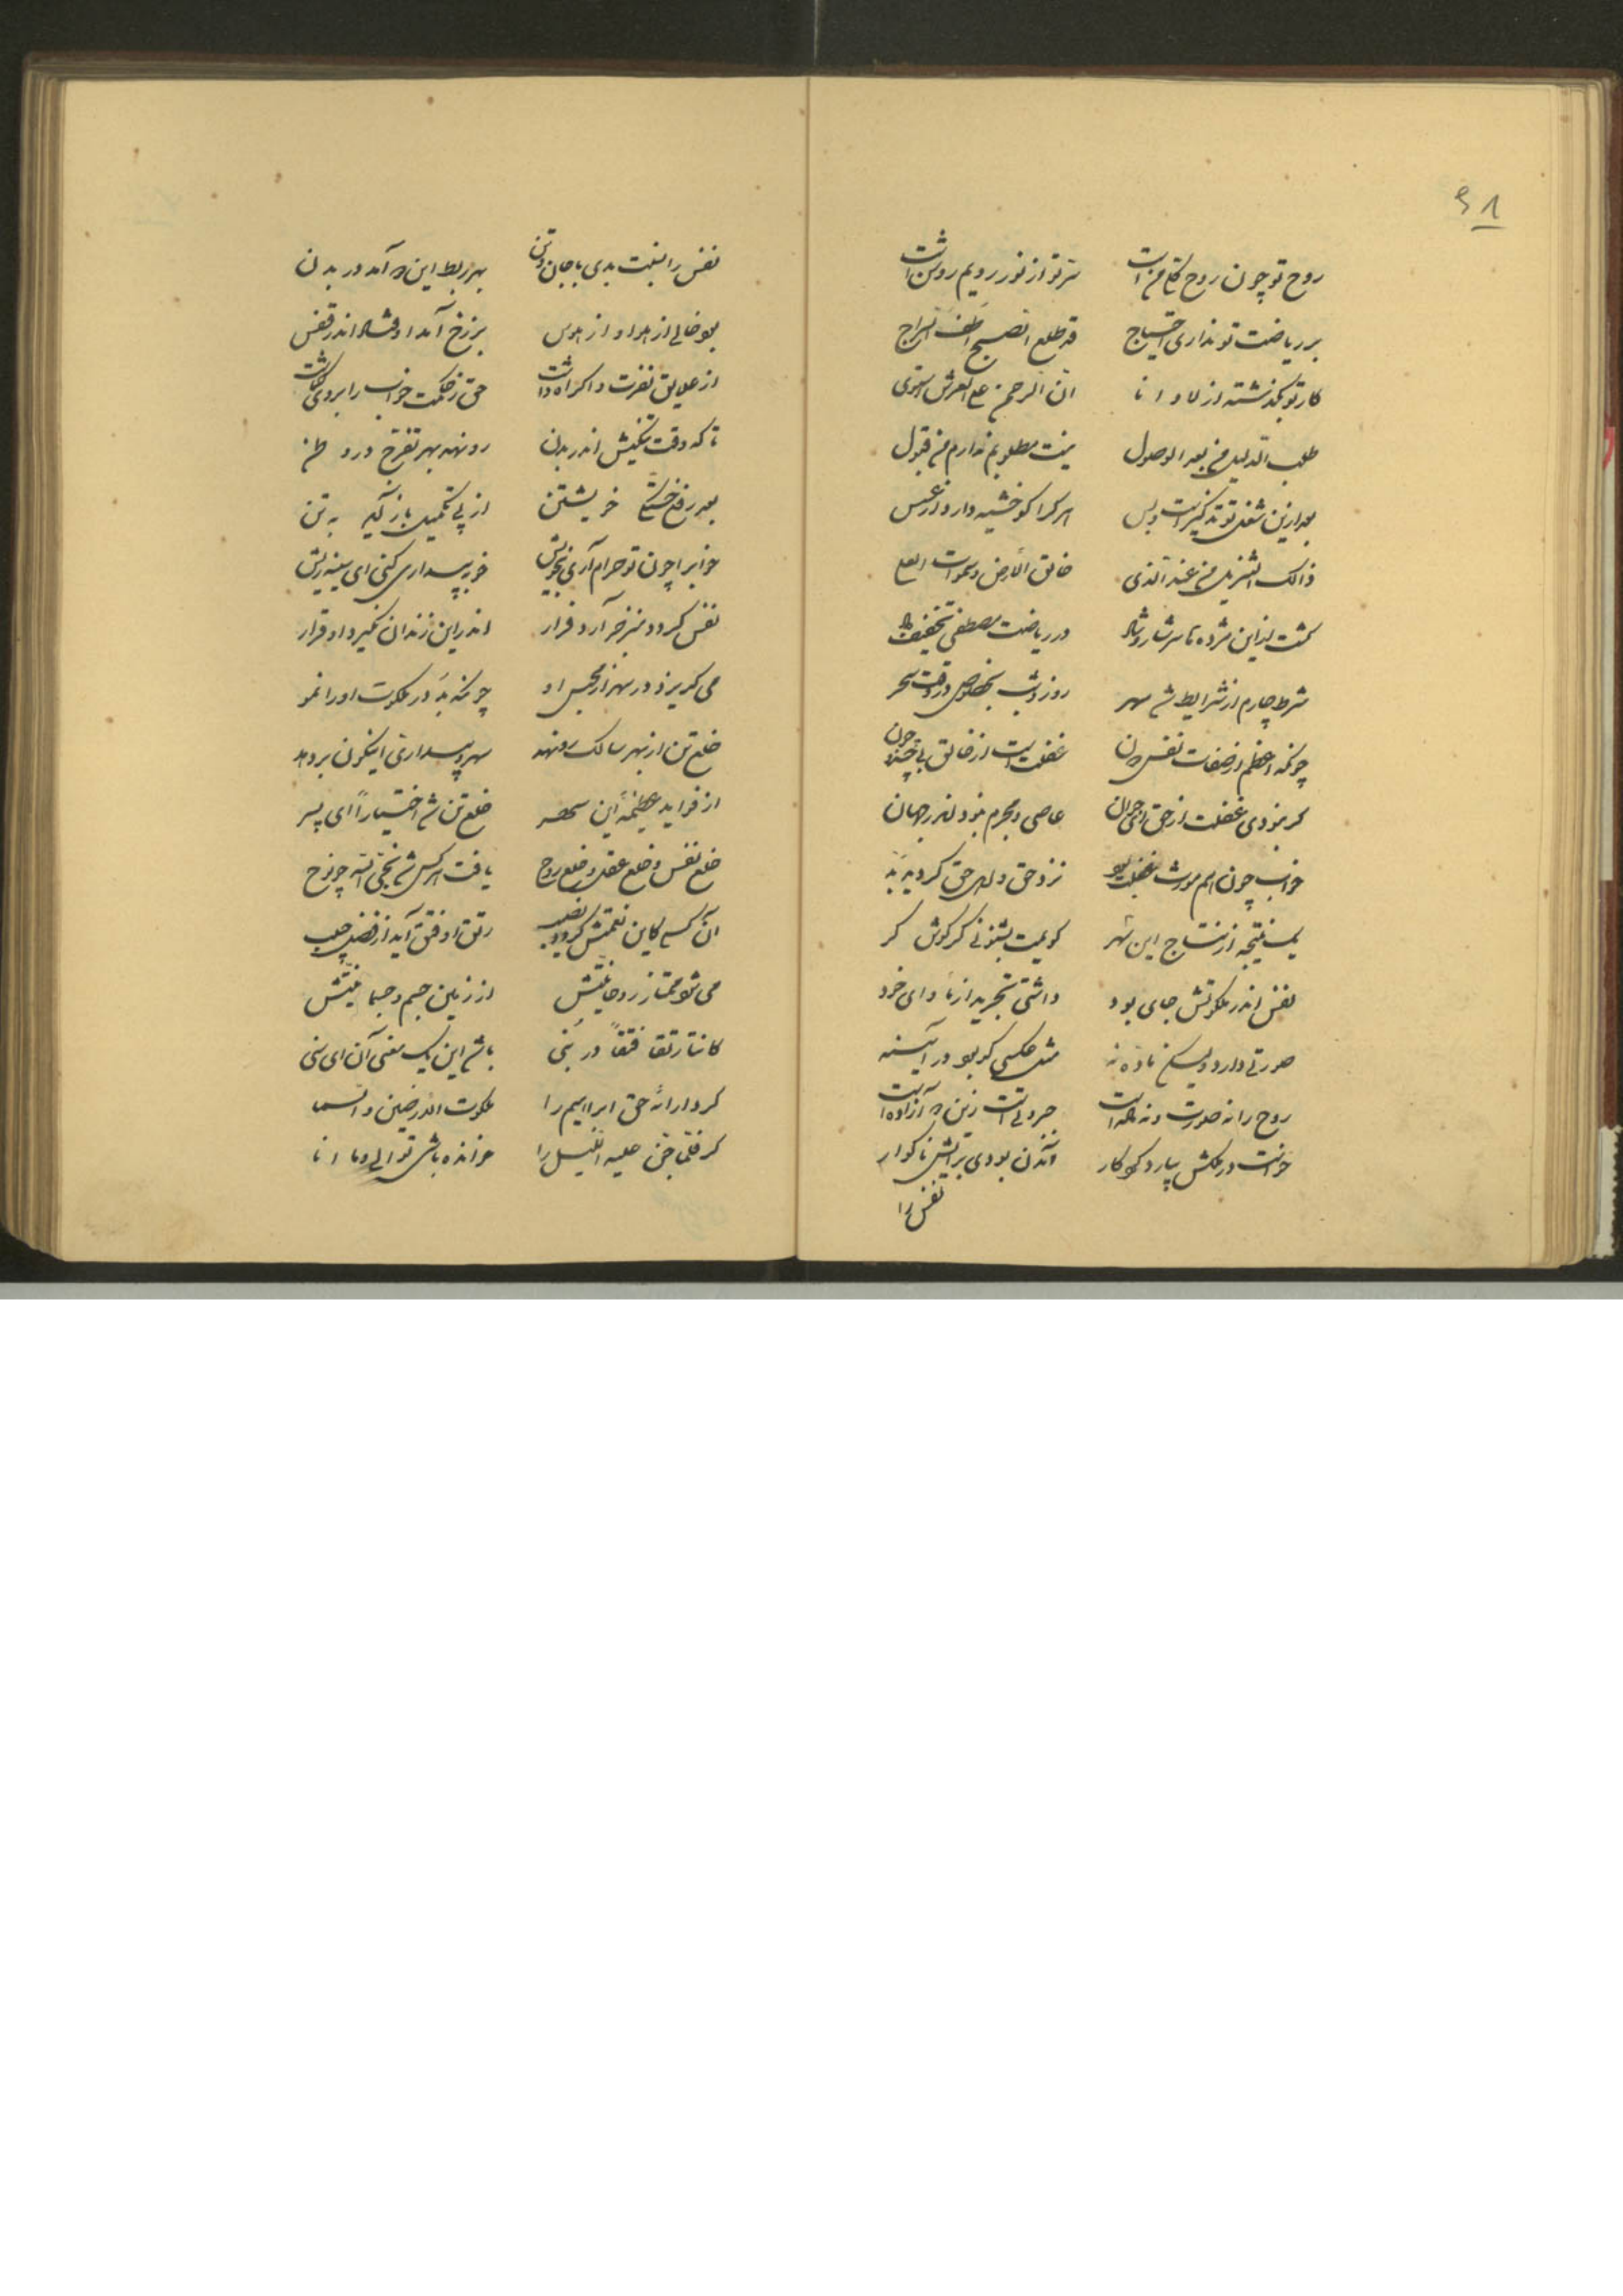 ۹۱
روح تو چون روح کلا من است سر تو از نور رویم روشن است
بر ریاضت تو نداری احتیاج قد طلع الصبح اطف السراج
کار تو بگذشته از لا و انا ان الرحمن علی العرش استوی
طلب الدلیل من بعد الوصول نیست مطلوبم ندارم من قبول
بعد ازین شغل تو تذکیر است و بس هر کرا کو خشیه دارد از عبس
ذالک التنزیل من عند الذی خالق الارض و سموات العلی
گشت از این مژده تا سرشار و شاد در ریاضت مصطفی تخفیف داد
شرط چارم از شرایط شد سهر روز و شب بخصوص در وقت سحر
چونکه اعظم از صفات نفس دان غفلت است از خالق بی چند و چون
گر نبودی غفلت از حق عاصی و مجرم نبود اندر جهان
خواب چون هم مورث غفلت بود نزد حق و اهل حق گردیده بد
یک نتیجه از نتاج این شهر گویمت بشنو نئی گر گوش کر
نفس اندر ملکوتش جای بود داشتی تجرید از ماوای خود
صورتی دارد ولیکن ماده نه مثل عکسی کو بود در آینه
روح را نه صورت و نه ماده است جبروتی است زین آزاده است
خواست در ملکش بیارد کردگار آمدن بودی برایش ناگوار
نفس را
نفس را نسبت بدی با جان و تن بهر ربط این دو آمد در بدن
بود خالی از هوا و از هوس برزخ آمد اوفتاد اندر قفس
از علایق نفرت و اکراه داشت حق ز حکمت خواب را بروی گماشت
تا که وقت تنگیش اندر بدن رو نهد بهر تفرج در وطن
بعد رفع خستگی خویشتن از پی تکمیل باز آید به تن
خواب را چون تو حرام آری بخویش خو به بیداری کنی ای سینه ریش
نفس گردد منزجر آرد فرار اندر این زندان نگیرد او قرار
می گریزد در سهر از محبس او چونکه بد در ملکوت او را نمو
خلع تن از بهر سالک رو نهد سهر و بیداری اینگون بر دهد
از فواید عظیمه این سهر خلع تن شد اختیاراً ای پسر
خلع نفس و خلع عقل و خلع روح یافت هر کس شد نجی الله چو نوح
آن کسی کاین نعمتش گردد نصیب رتق او فتق آید از فضل حبیب
می شود ممتاز روحانیتش از زمین جسم و جسمانیتش
کانتا رتقا فتقا در نبی باشد این یک معنی آن ای سنی
کرد ارائه حق ابراهیم را ملکوت الارضین و السما
گر فلما جن علیه اللیل را خوانده باشی تو الی و ما انا